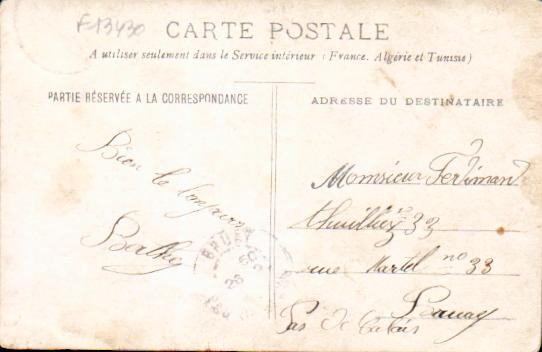 F13430
CARTE POSTALE
A utiliser seulement dans le Service intérieur (France, Algérie et Tunisie)
PARTIE RÉSERVÉE A LA CORRESPONDANCE
ADRESSE DU DESTINATAIRE
Bien le bonjour
Monsieur Ferdinand
Thuilliez 33
rue Martel no 33
Pas de Calais